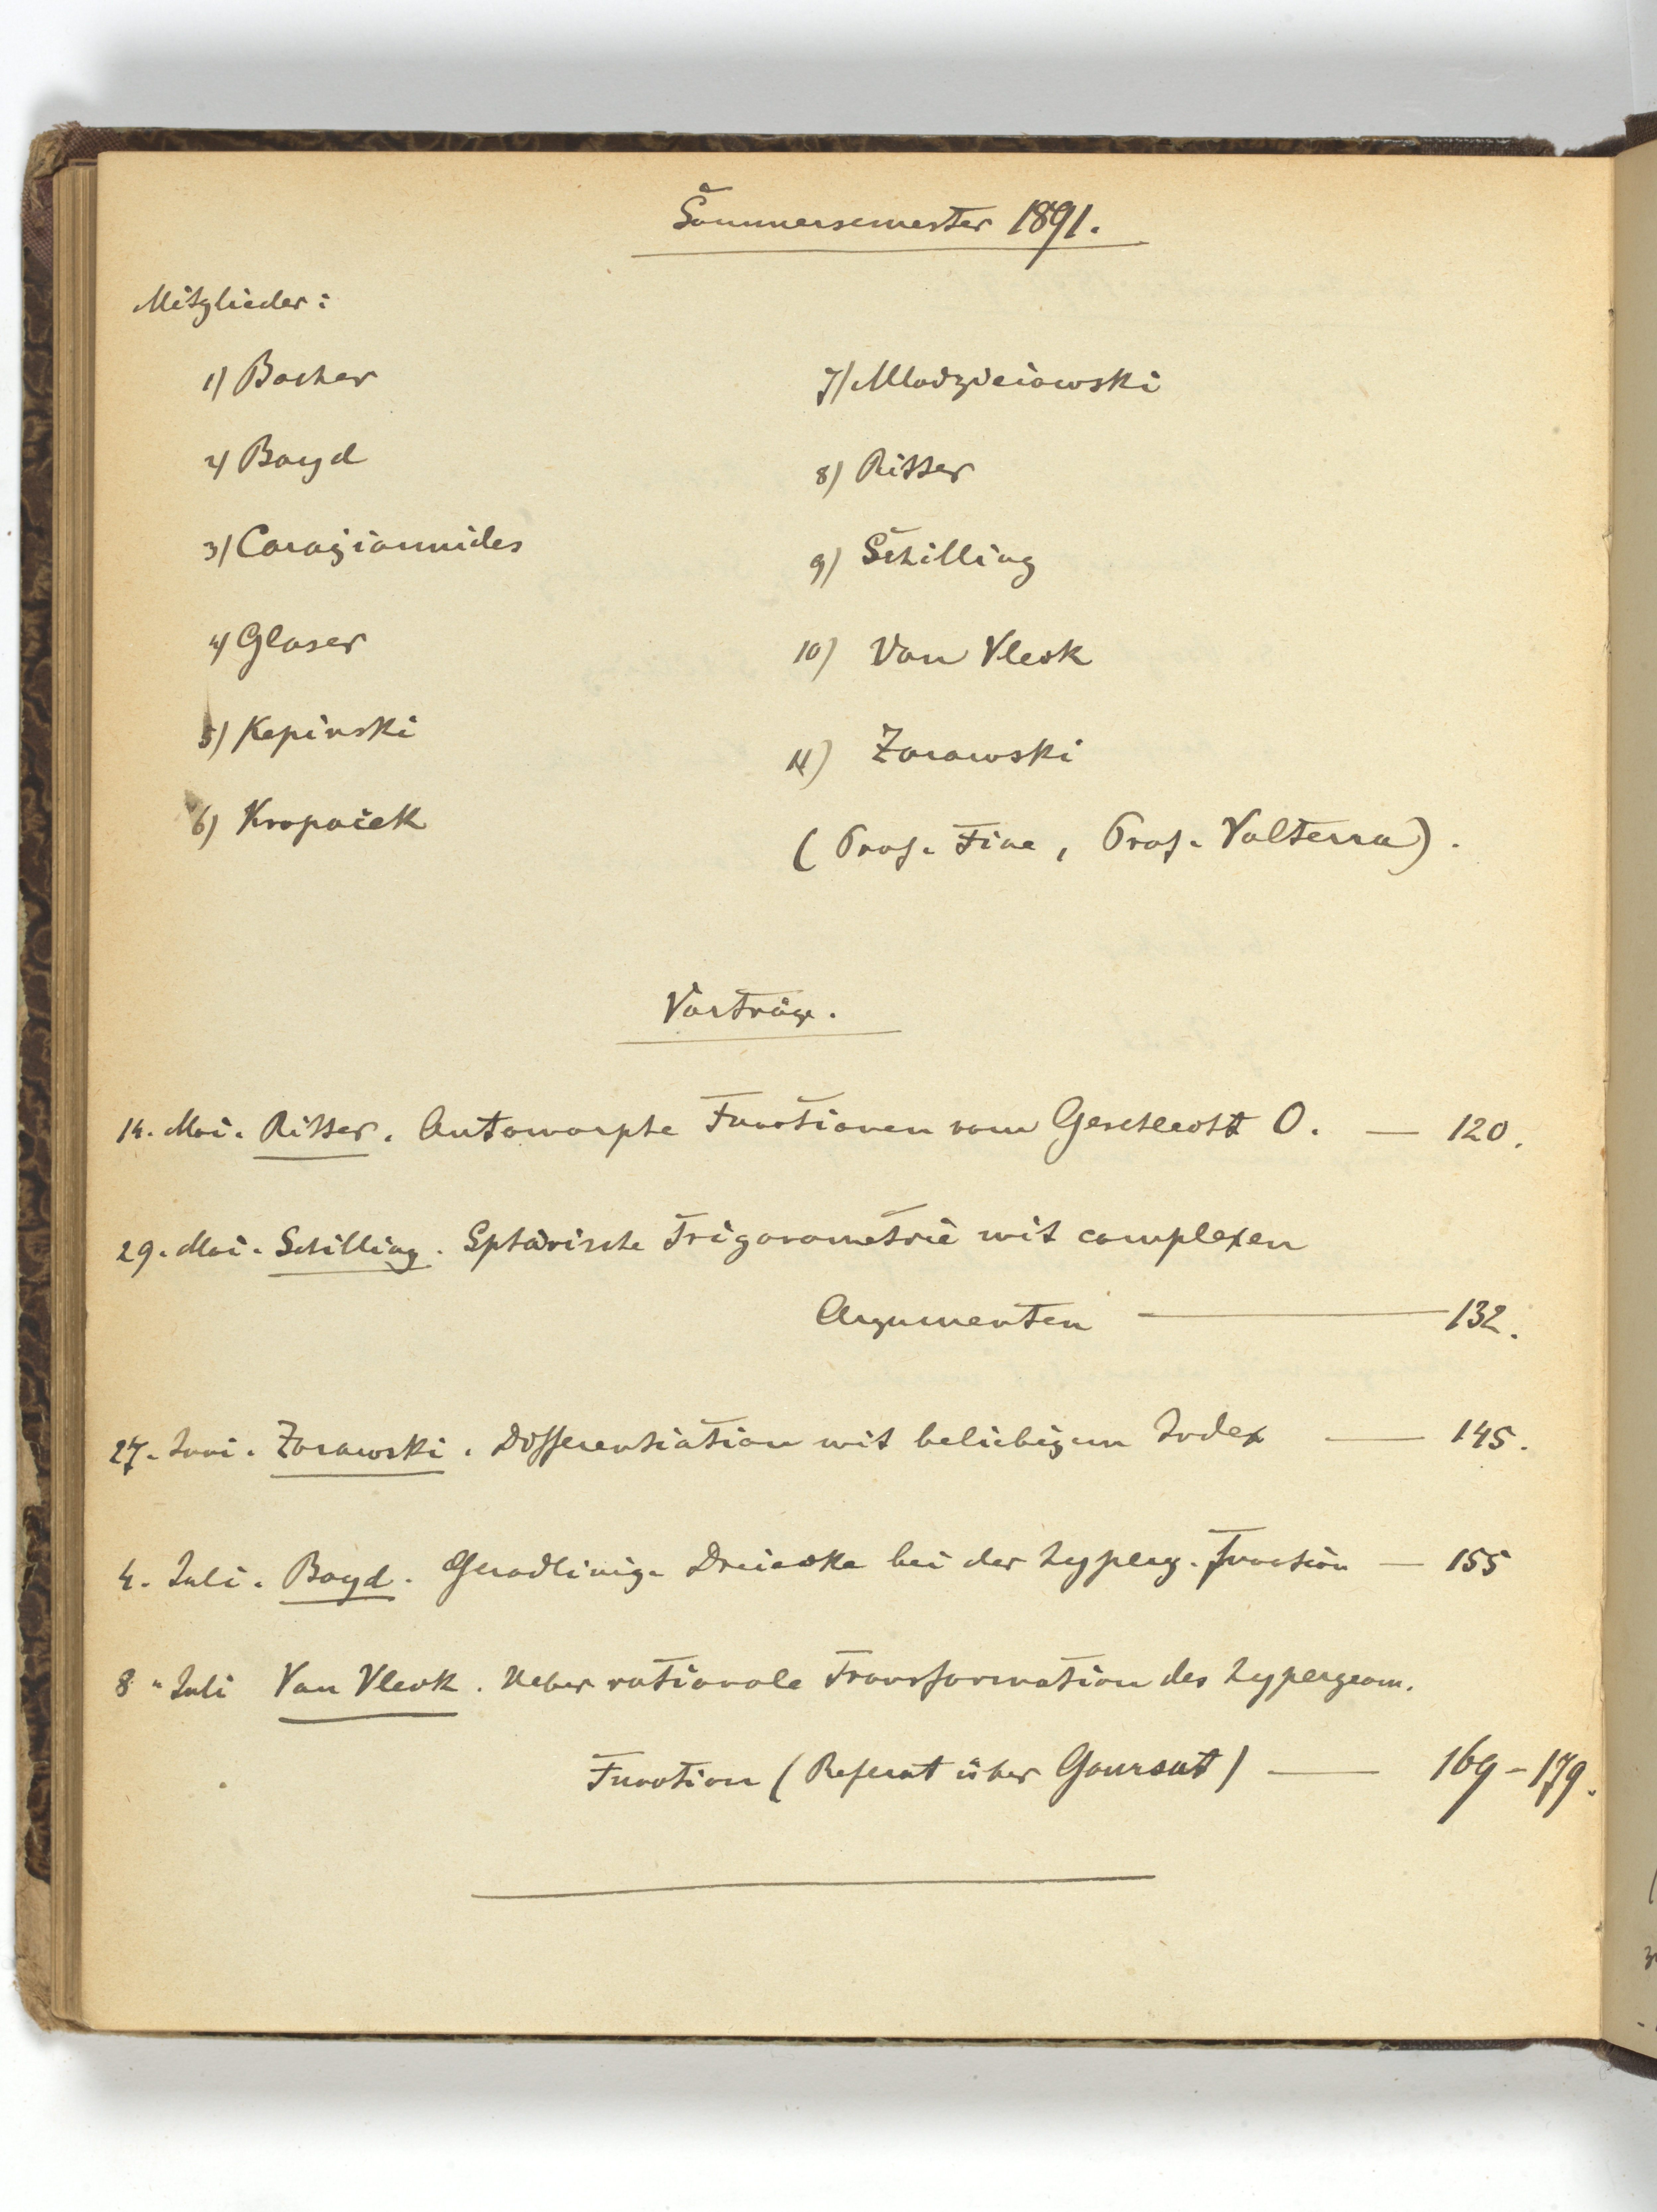 Sommersemester 1891.
Mitglieder:
1) Bocher
2) Boyd
3) Caragiannides
4) Glaser
5) Kepinski
6) Kropaček
7) Mlodzieiowski
8) Ritter
9) Schilling
10) Van Vleck
11) Zorawski
(Prof. Fine, Prof. Volterra).
Vorträge.
14. Mai. Ritter. Automorphe Functionen vom Geschlecht 0. — 120.
29. Mai. Schilling. Sphärische Trigonometrie mit complexen
Argumenten — 132.
27. Juni. Zorawski. Differentiation mit beliebigem Index — 145.
4. Juli. Boyd. Geradlinige Dreiecke bei der hyperg. Function — 155
8. Juli Van Vleck. Ueber rationale Transformation der hypergeom.
Function (Referat über Goursat) — 169-179.